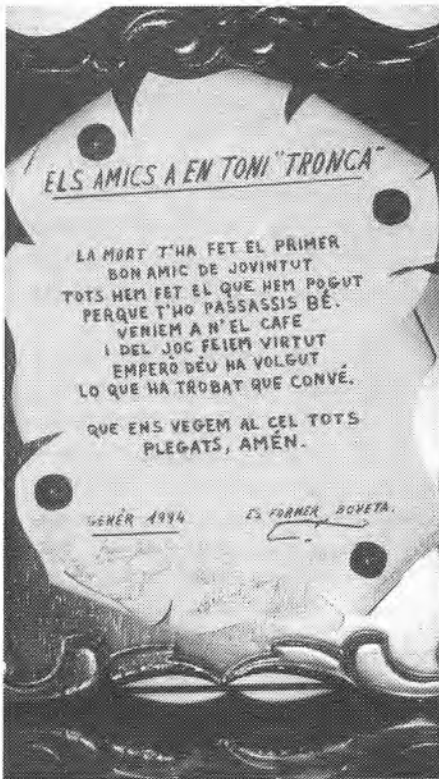 ELS AMICS A EN TONI "TRONCA"
LA MORT T'HA FET EL PRIMER
BON AMIC DE JOVINTUT
TOTS HEM FET EL QUE HEM POGUT
PERQUE T'HO PASSASSIS BÉ.
VENIEM A N'EL CAFE
I DEL JOC FEIEM VIRTUT
EMPERÒ DÉU HA VOLGUT
LO QUE HA TROBAT QUE CONVÉ.
QUE ENS VEGEM AL CEL TOTS
PLEGATS, AMÉN.
GENÉR 1994
ES FORNER BOVETA.